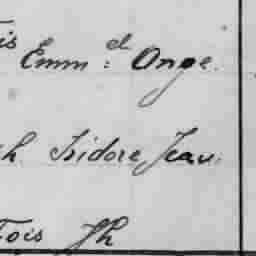 is Emm:el Ange.
h. Isidore Jean.
Fois Jh